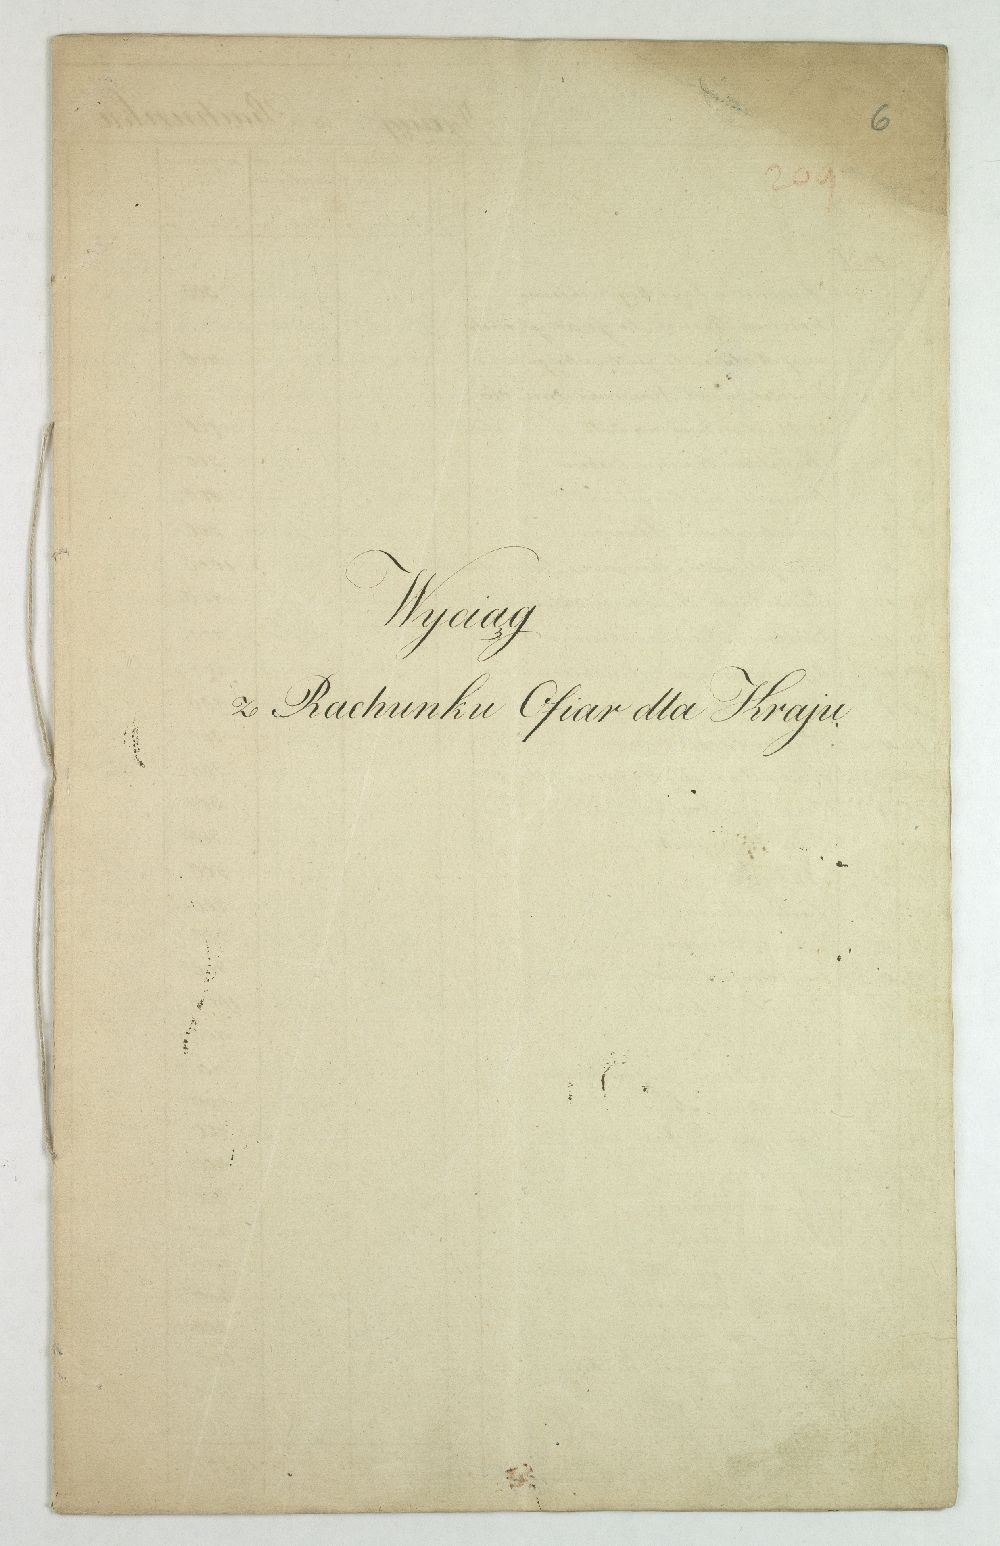 6
204
Wyciąg
z Rachunku Ofiar dla Kraju.